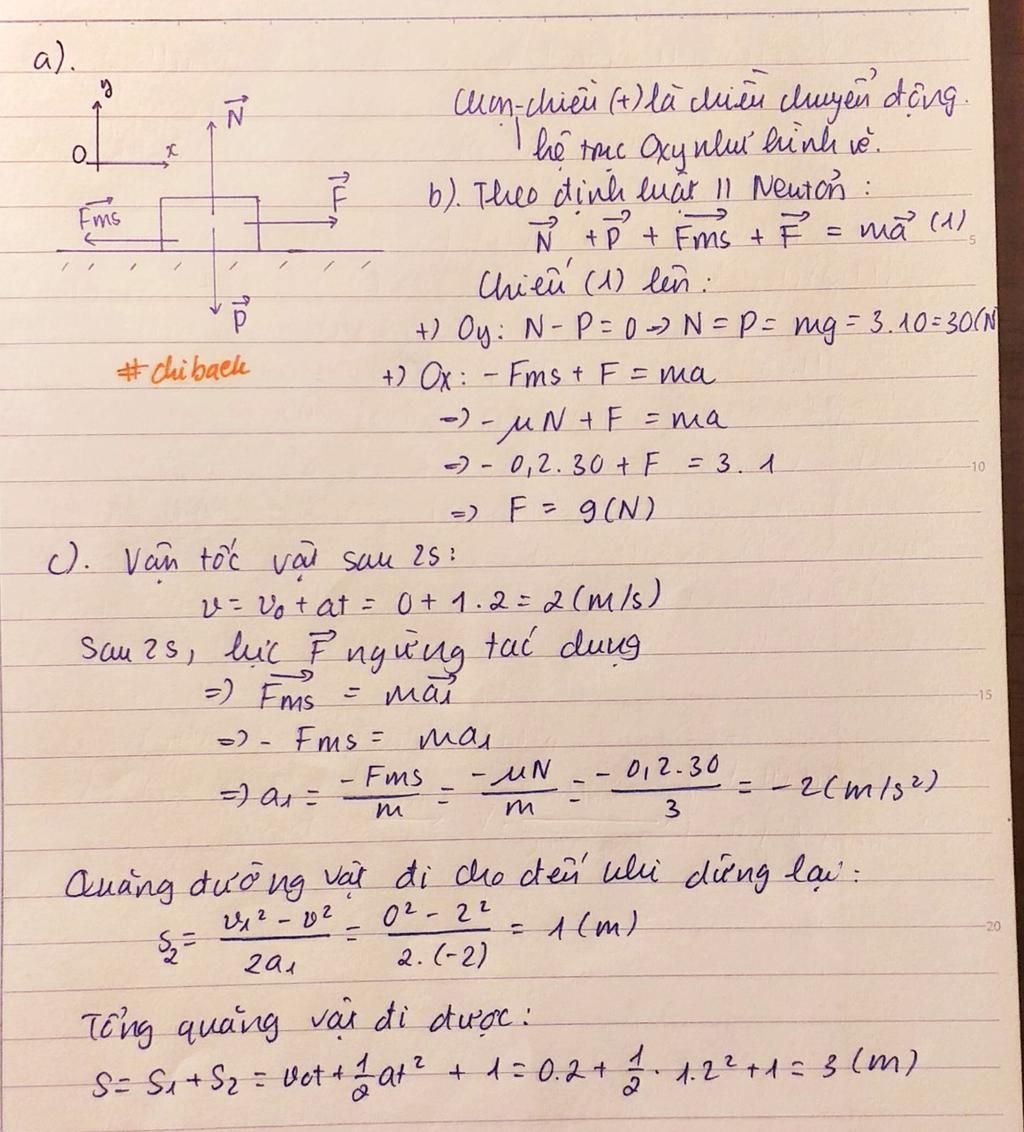 a).
y
O
x
N
F
Fms
P
#chibaek
Chọn chiều (+) là chiều chuyển động.
hệ trục Oxy như hình vẽ.
b). Theo định luật II Newton:
N + P + Fms + F = ma (1)
Chiếu (1) lên:
+) Oy: N - P = 0 => N = P = mg = 3.10 = 30(N
+) Ox: - Fms + F = ma
=> - μN + F = ma
=> - 0,2.30 + F = 3.1
=> F = 9(N)
c). Vận tốc vật sau 2s:
v = v₀ + at = 0 + 1.2 = 2(m/s)
Sau 2s, lực F ngừng tác dụng
=> Fms = ma₁
=> - Fms = ma₁
=> a₁ = -Fms/m = -μN/m = -0,2.30/3 = -2(m/s²)
Quãng đường vật đi cho đến khi dừng lại:
S₂ = (v₁² - v²)/(2a₁) = (0² - 2²)/(2.(-2)) = 1(m)
Tổng quãng vật đi được:
S = S₁ + S₂ = v₀t + 1/2 at² + 1 = 0.2 + 1/2 . 1.2² + 1 = 3 (m)
5
10
15
20